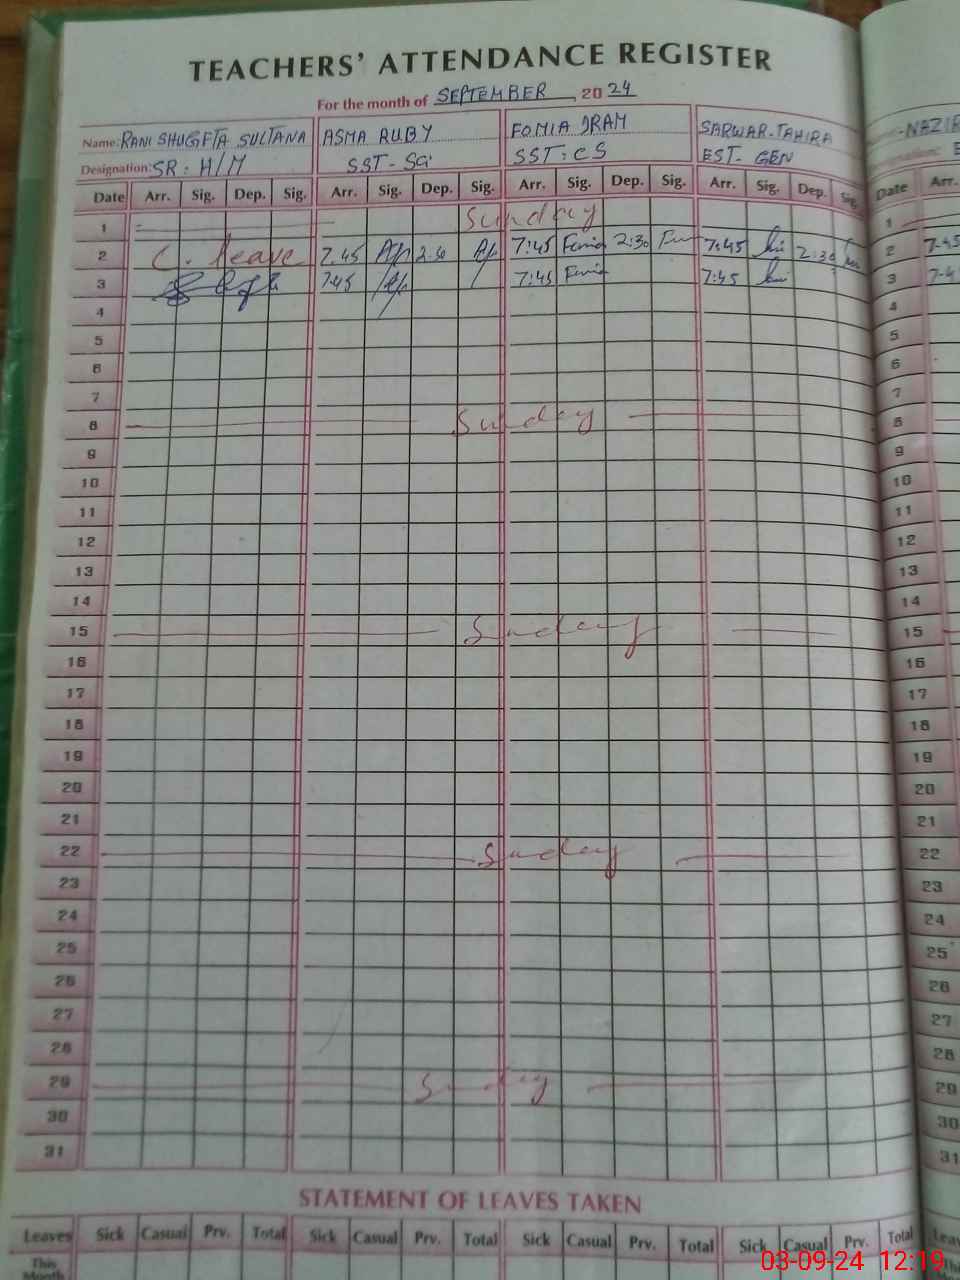 TEACHERS' ATTENDANCE REGISTER
For the month of SEPTEMBER 2024
Name: RANI SHUGFTA SULTANA ASMA RUBY FOMIA IRAM SARWAR-TAHIRA -NAZIR
Designation: SR: H/M SST-SC SST: CS EST-GEN
Date Arr. Sig. Dep. Sig. Arr. Sig. Dep. Sig. Arr. Sig. Dep. Sig. Arr. Sig. Dep. Sig. Date Arr.
1 Sunday 1
2 C. leave 7.45 2:30 7:45 2:30 7:45 2:30 2 7-45
3 7-45 7:45 7:45 3
4 4
5 5
6 6
7 7
8 Sunday 8
9 9
10 10
11 11
12 12
13 13
14 14
15 Sunday 15
16 16
17 17
18 18
19 19
20 20
21 21
22 Sunday 22
23 23
24 24
25 25
26 26
27 27
28 28
29 Sunday 29
30 30
31 31
STATEMENT OF LEAVES TAKEN
Leaves Sick Casual Prv. Total Sick Casual Prv. Total Sick Casual Prv. Total Sick Casual Prv. Total
This
Month
03-09-24 12:19